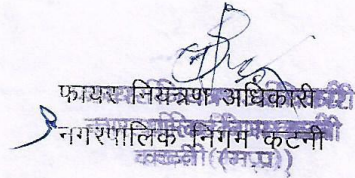 फायर नियंत्रण अधिकारी
नगरपालिक निगम कटनी
(म.प्र.)